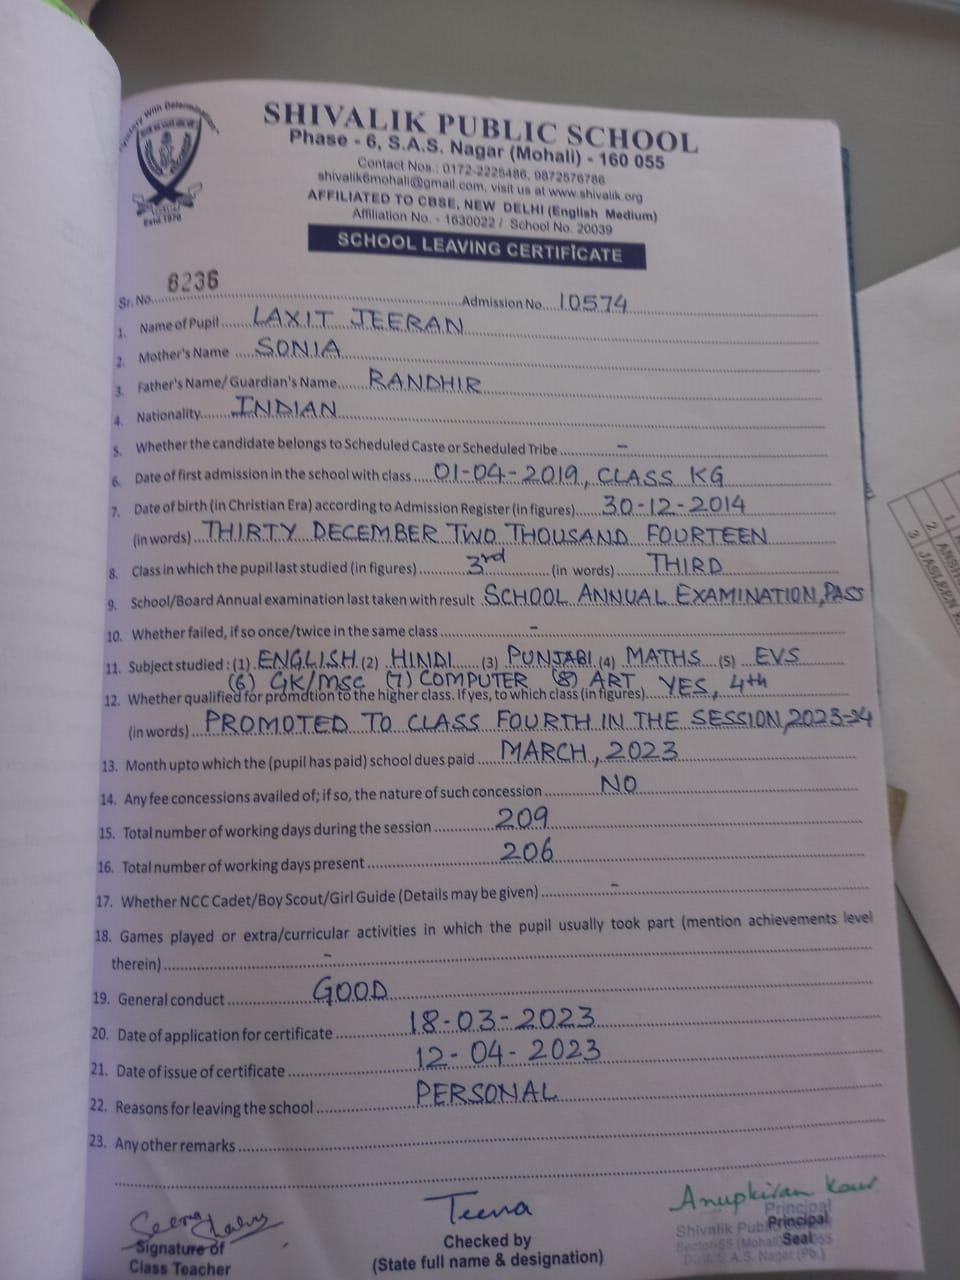 SHIVALIK PUBLIC SCHOOL
Phase - 6, S.A.S. Nagar (Mohali) - 160 055
Contact Nos.: 0172-2225486, 9872576786
shivalik6mohali@gmail.com, visit us at www.shivalik.org
AFFILIATED TO CBSE, NEW DELHI (English Medium)
Affiliation No. - 1630022 / School No. 20039
With Determination
Estd.1970
SCHOOL LEAVING CERTIFICATE
Sr. No. 6236 Admission No. 10574
1. Name of Pupil LAXIT JEERAN
2. Mother's Name SONIA
3. Father's Name/ Guardian's Name RANDHIR
4. Nationality INDIAN
5. Whether the candidate belongs to Scheduled Caste or Scheduled Tribe -
6. Date of first admission in the school with class 01-04-2019, CLASS KG
7. Date of birth (in Christian Era) according to Admission Register (in figures) 30-12-2014
(in words) THIRTY DECEMBER TWO THOUSAND FOURTEEN
8. Class in which the pupil last studied (in figures) 3rd (in words) THIRD
9. School/Board Annual examination last taken with result SCHOOL ANNUAL EXAMINATION, PASS
10. Whether failed, if so once/twice in the same class -
11. Subject studied : (1) ENGLISH (2) HINDI (3) PUNJABI (4) MATHS (5) EVS
(6) GK/MSC (7) COMPUTER (8) ART
12. Whether qualified for promotion to the higher class. If yes, to which class (in figures) YES, 4th
(in words) PROMOTED TO CLASS FOURTH IN THE SESSION, 2023-24
13. Month upto which the (pupil has paid) school dues paid MARCH, 2023
14. Any fee concessions availed of; if so, the nature of such concession NO
15. Total number of working days during the session 209
16. Total number of working days present 206
17. Whether NCC Cadet/Boy Scout/Girl Guide (Details may be given) -
18. Games played or extra/curricular activities in which the pupil usually took part (mention achievements level
therein) -
19. General conduct GOOD
20. Date of application for certificate 18-03-2023
21. Date of issue of certificate 12-04-2023
22. Reasons for leaving the school PERSONAL
23. Any other remarks
Teena Anupkiran Kaur
Signature of
Class Teacher
Checked by
(State full name & designation)
Principal
Principal
Shivalik Seal
S.A.S. Nagar (Pb.)
1
2
3 JASLEEN K